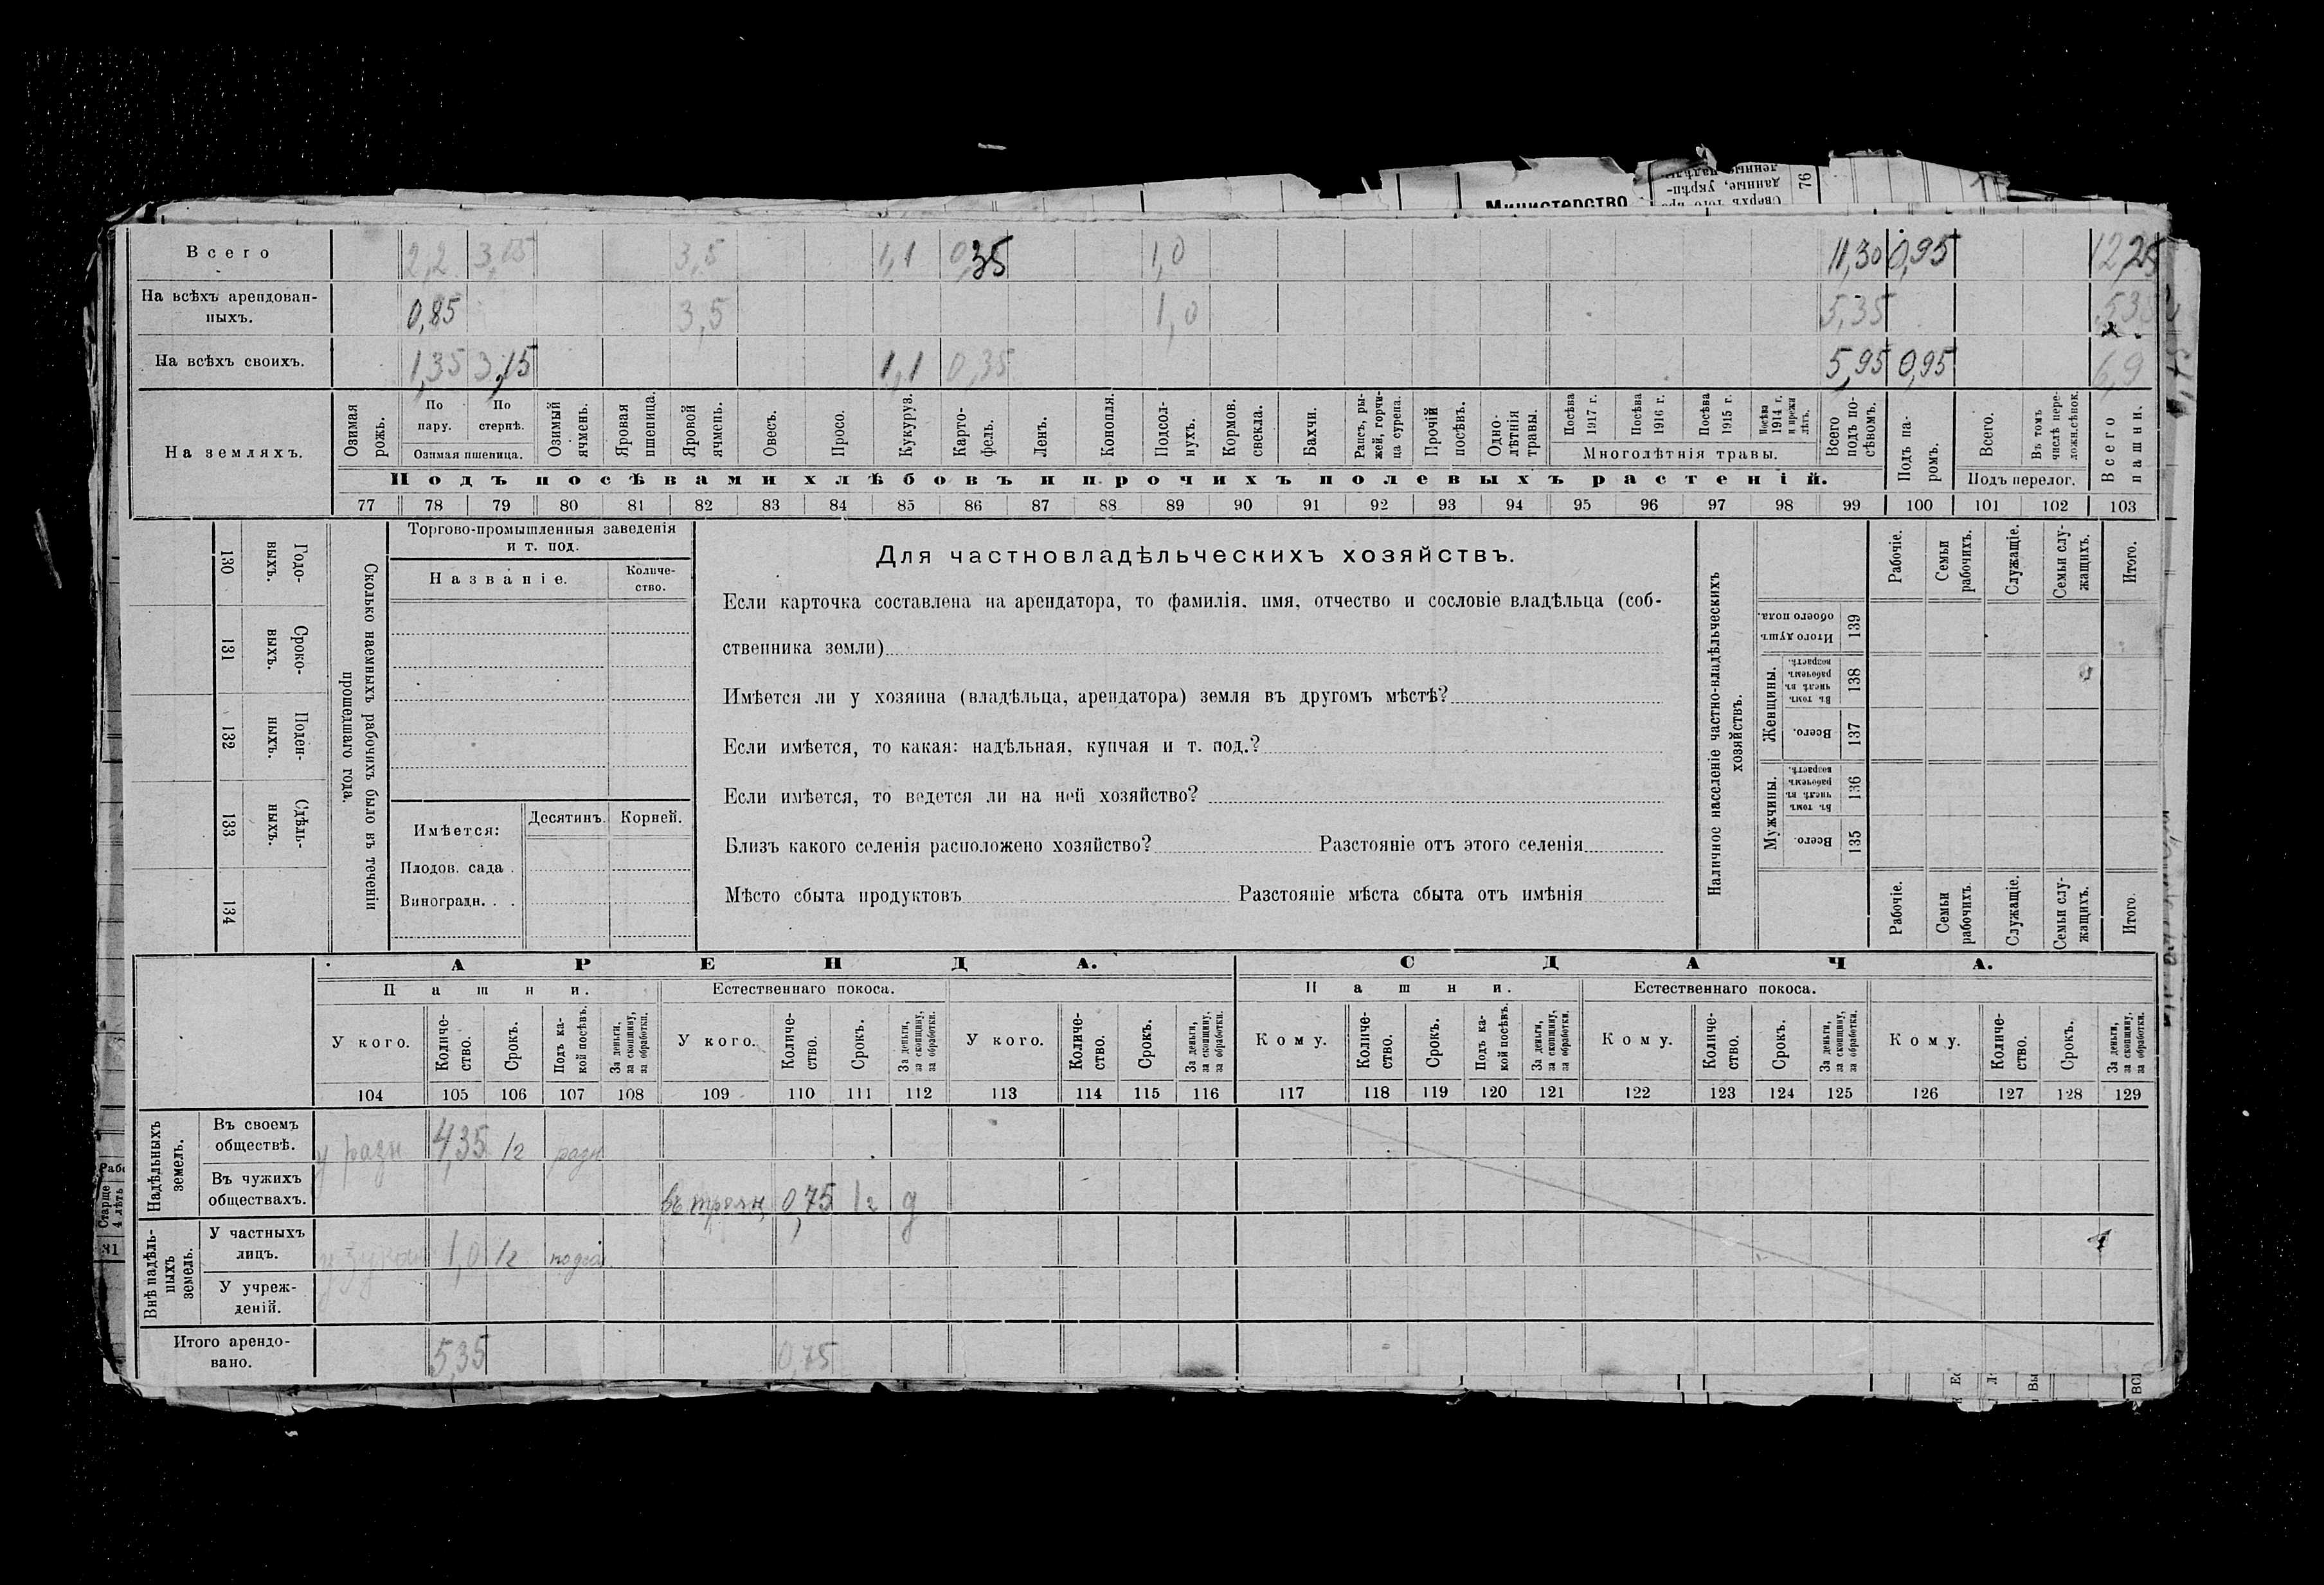 Министерство
76
Всего 2,2 3,15 3,5 1,1 0,35 1,0 11,30 0,95 12,25
На всѣхъ арендован-
ныхъ. 0,85 3,5 1,0 5,35 5,35
На всѣхъ своихъ. 1,35 3,15 1,1 0,35 5,95 0,95 6,9
На земляхъ.
Озимая рожь.
По пару.
По стернѣ.
Озимая пшеница.
Озимый ячмень.
Яровая пшеница.
Яровой ячмень.
Овесъ.
Просо.
Кукуруз.
Карто-
фель.
Ленъ.
Конопля.
Подсол-
нухъ.
Кормов. свекла.
Бахчи.
Рапсъ, ры-
жей, горчи-
ца сурепа.
Прочій посѣвъ.
Одно-
лѣтнія травы.
Посѣва 1917 г.
Посѣва 1916 г.
Посѣва 1915 г.
Посѣва 1914 г. и прежн лѣтъ.
Многолѣтнія травы.
Всего подъ по-
сѣвомъ.
Подъ па-
ромъ.
Всего.
Въ томъ числѣ пере-
ложн.сѣнок.
Подъ перелог.
Всего пашни.
Подъ посѣвами хлѣбовъ и прочихъ полевыхъ растеній.
77 78 79 80 81 82 83 84 85 86 87 88 89 90 91 92 93 94 95 96 97 98 99 100 101 102 103
Сколько наемныхъ рабочихъ было въ теченіи
прошедшаго года.
Годо-
выхъ.
130
Сроко-
выхъ.
131
Поден-
ныхъ.
132
Сдѣль-
ныхъ.
133
134
Торгово-промышленныя заведенія
и т. под.
Названіе.
Количе-
ство.
Имѣется:
Десятинъ. Корней.
Плодов. сада .
Виноградн. . .
Для частновладѣльческихъ хозяйствъ.
Если карточка составлена на арендатора, то фамилія, имя, отчество и сословіе владѣльца (соб-
ственника земли)
Имѣется ли у хозяина (владѣльца, арендатора) земля въ другомъ мѣстѣ?
Если имѣется, то какая: надѣльная, купчая и т. под.?
Если имѣется, то ведется ли на ней хозяйство?
Близъ какого селенія расположено хозяйство? Разстояніе отъ этого селенія
Мѣсто сбыта продуктовъ Разстояніе мѣста сбыта отъ имѣнія
Наличное населеніе частно-владѣльческихъ
хозяйствъ.
Рабочіе.
Семьи рабочихъ.
Служащіе.
Семьи слу-
жащихъ.
Итого.
Итого душъ обоего пола.
139
Женщины.
Въ томъ числѣ въ рабочемъ возрастѣ.
138
Всего.
137
Мужчины.
Въ томъ числѣ въ рабочемъ возрастѣ.
136
Всего.
135
Рабочіе.
Семьи рабочихъ.
Служащіе.
Семьи слу-
жащихъ.
Итого.
АРЕНДА. СДАЧА.
Пашни. Естественнаго покоса. Пашни. Естественнаго покоса.
У кого. Количе-
ство. Срокъ. Подъ ка-
кой посѣвъ. За деньги, за скопщину, за обработки.
У кого. Количе-
ство. Срокъ. За деньги, за скопщину, за обработки.
У кого. Количе-
ство. Срокъ. За деньги, за скопщину, за обработки.
Кому. Количе-
ство. Срокъ. Подъ ка-
кой посѣвъ. За деньги, за скопщину, за обработки.
Кому. Количе-
ство. Срокъ. За деньги, за скопщину, за обработки.
Кому. Количе-
ство. Срокъ. За деньги, за скопщину, за обработки.
104 105 106 107 108 109 110 111 112 113 114 115 116 117 118 119 120 121 122 123 124 125 126 127 128 129
Надѣльныхъ земель.
Въ своемъ
обществѣ. у разн 4,35 1г разн
Въ чужихъ
обществахъ. 0,75 1г д
Внѣ надѣль-
ныхъ земель.
У частныхъ
лицъ. 1,0 1г
У учреж-
деній.
Итого арендо-
вано. 5,35 0,75